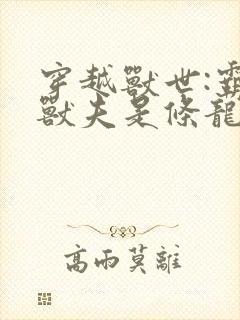 穿越獸世:靈
獸夫是條龍
高雨莫離